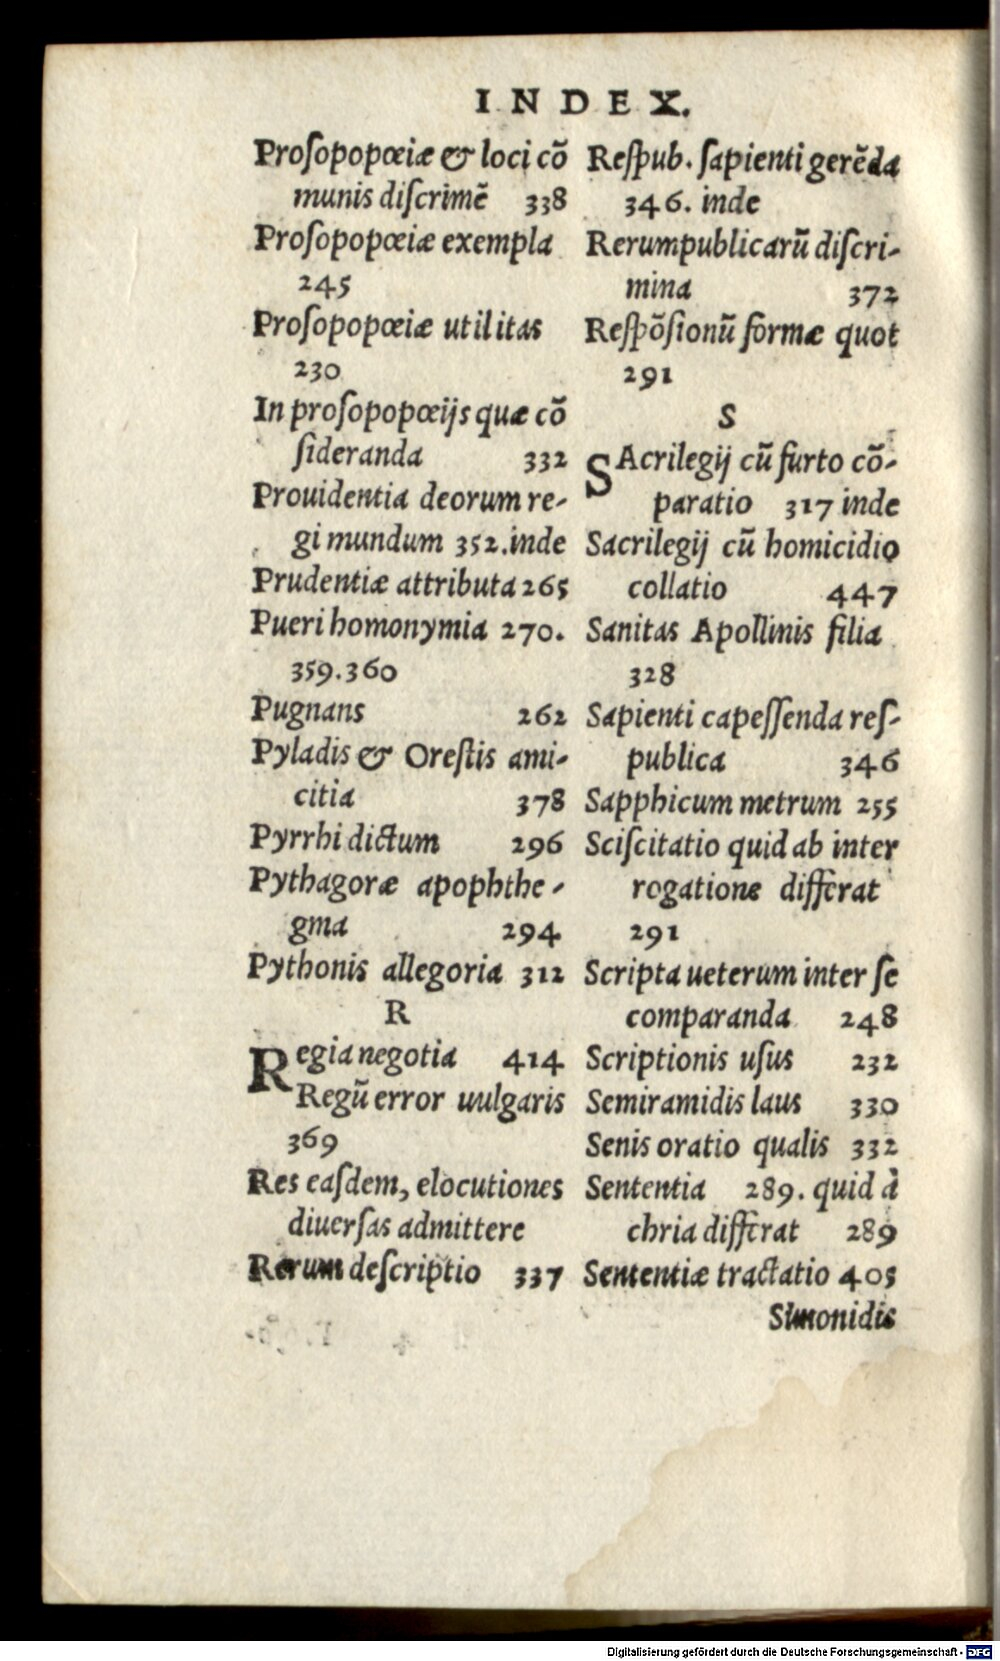 INDEX.
Proſopopœiæ & loci cõ
munis diſcrimẽ 338
Proſopopœiæ exempla
245
Proſopopœiæ utilitas
230
In proſopopœijs quæ cõ
ſideranda 332
Prouidentia deorum re-
gi mundum 352.inde
Prudentiæ attributa 265
Pueri homonymia 270.
359.360
Pugnans 262
Pyladis & Oreſtis ami-
citia 378
Pyrrhi dictum 296
Pythagoræ apophthe-
gma 294
Pythonis allegoria 312
R
Regia negotia 414
Regũ error uulgaris
369
Res eaſdem, elocutiones
diuerſas admittere
Rerum deſcriptio 337
Reſpub. ſapienti gerẽda
346. inde
Rerumpublicarũ diſcri-
mina 372
Reſpõſionũ formæ quot
291
S
SAcrilegij cũ furto cõ-
paratio 317 inde
Sacrilegij cũ homicidio
collatio 447
Sanitas Apollinis filia
328
Sapienti capeſſenda reſ-
publica 346
Sapphicum metrum 255
Sciſcitatio quid ab inter
rogatione differat
291
Scripta ueterum inter ſe
comparanda 248
Scriptionis uſus 232
Semiramidis laus 330
Senis oratio qualis 332
Sententia 289. quid à
chria differat 289
Sententiæ tractatio 405
Simonidis
Digitalisierung gefördert durch die Deutsche Forschungsgemeinschaft - DFG